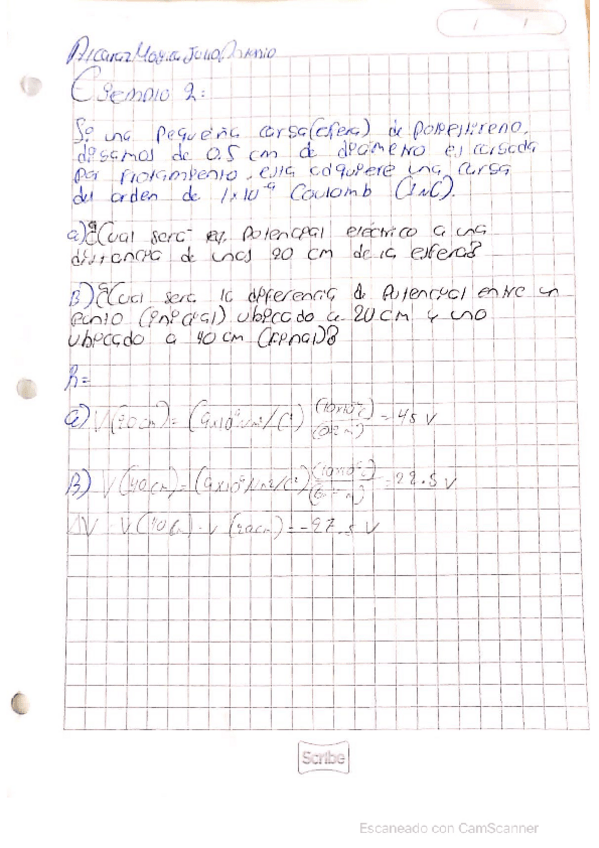 Ejemplo 2:
Se una pequeña carga (esfera) de poliestireno,
digamos de 0.5 cm de diametro es cargada
por frotamiento, esta adquiere una carga
del orden de 1x10⁻⁹ Coulomb (1nC).
a) ¿Cual sera el potencial eléctrico a una
distancia de unos 20 cm de la esfera?
B) ¿Cual sera la diferencia de Potencial entre un
punto (inicial) ubicado a 20 cm y uno
ubicado a 40 cm (final)?
R=
a) V(20cm) = (9x10⁹ Nm²/C²) = 45 V
B) V(40cm) = (9x10⁹ Nm²/C²) = 22.5 V
ΔV V(40cm) - V(20cm) =
Scribe
Escaneado con CamScanner